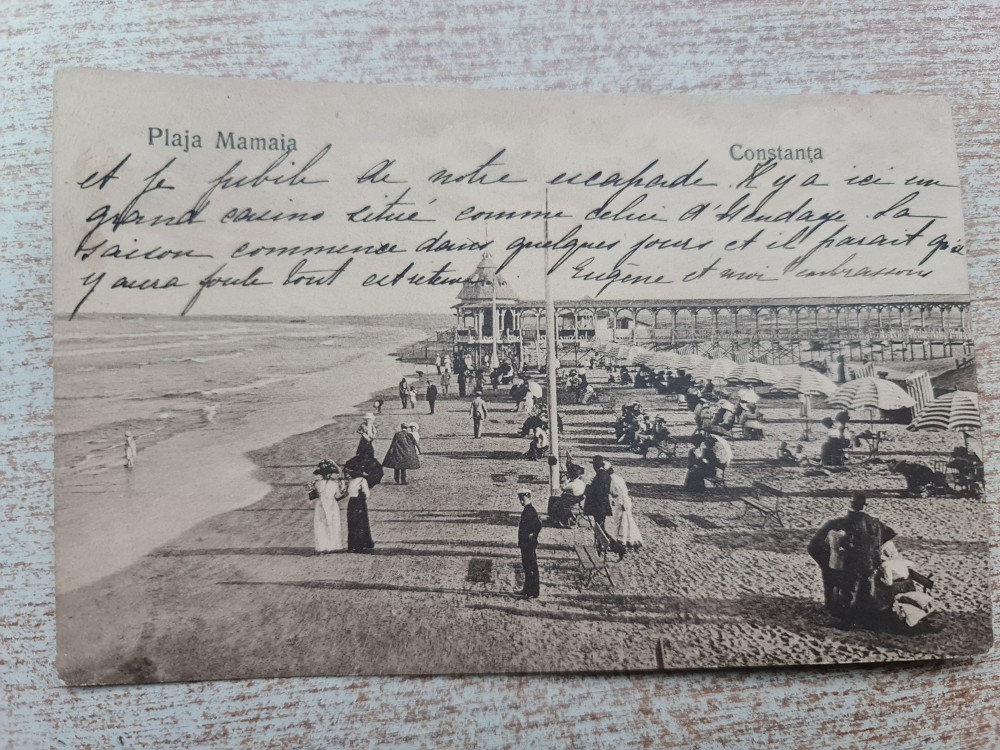 Plaja Mamaia
Constanţa
et je jubile de notre escapade. Il y a ici un
grand casino situé comme celui d'Hendaye. La
saison commence dans quelques jours et il parait qu'il
y aura foule tout est retenu. Eugène et moi t'embrassons